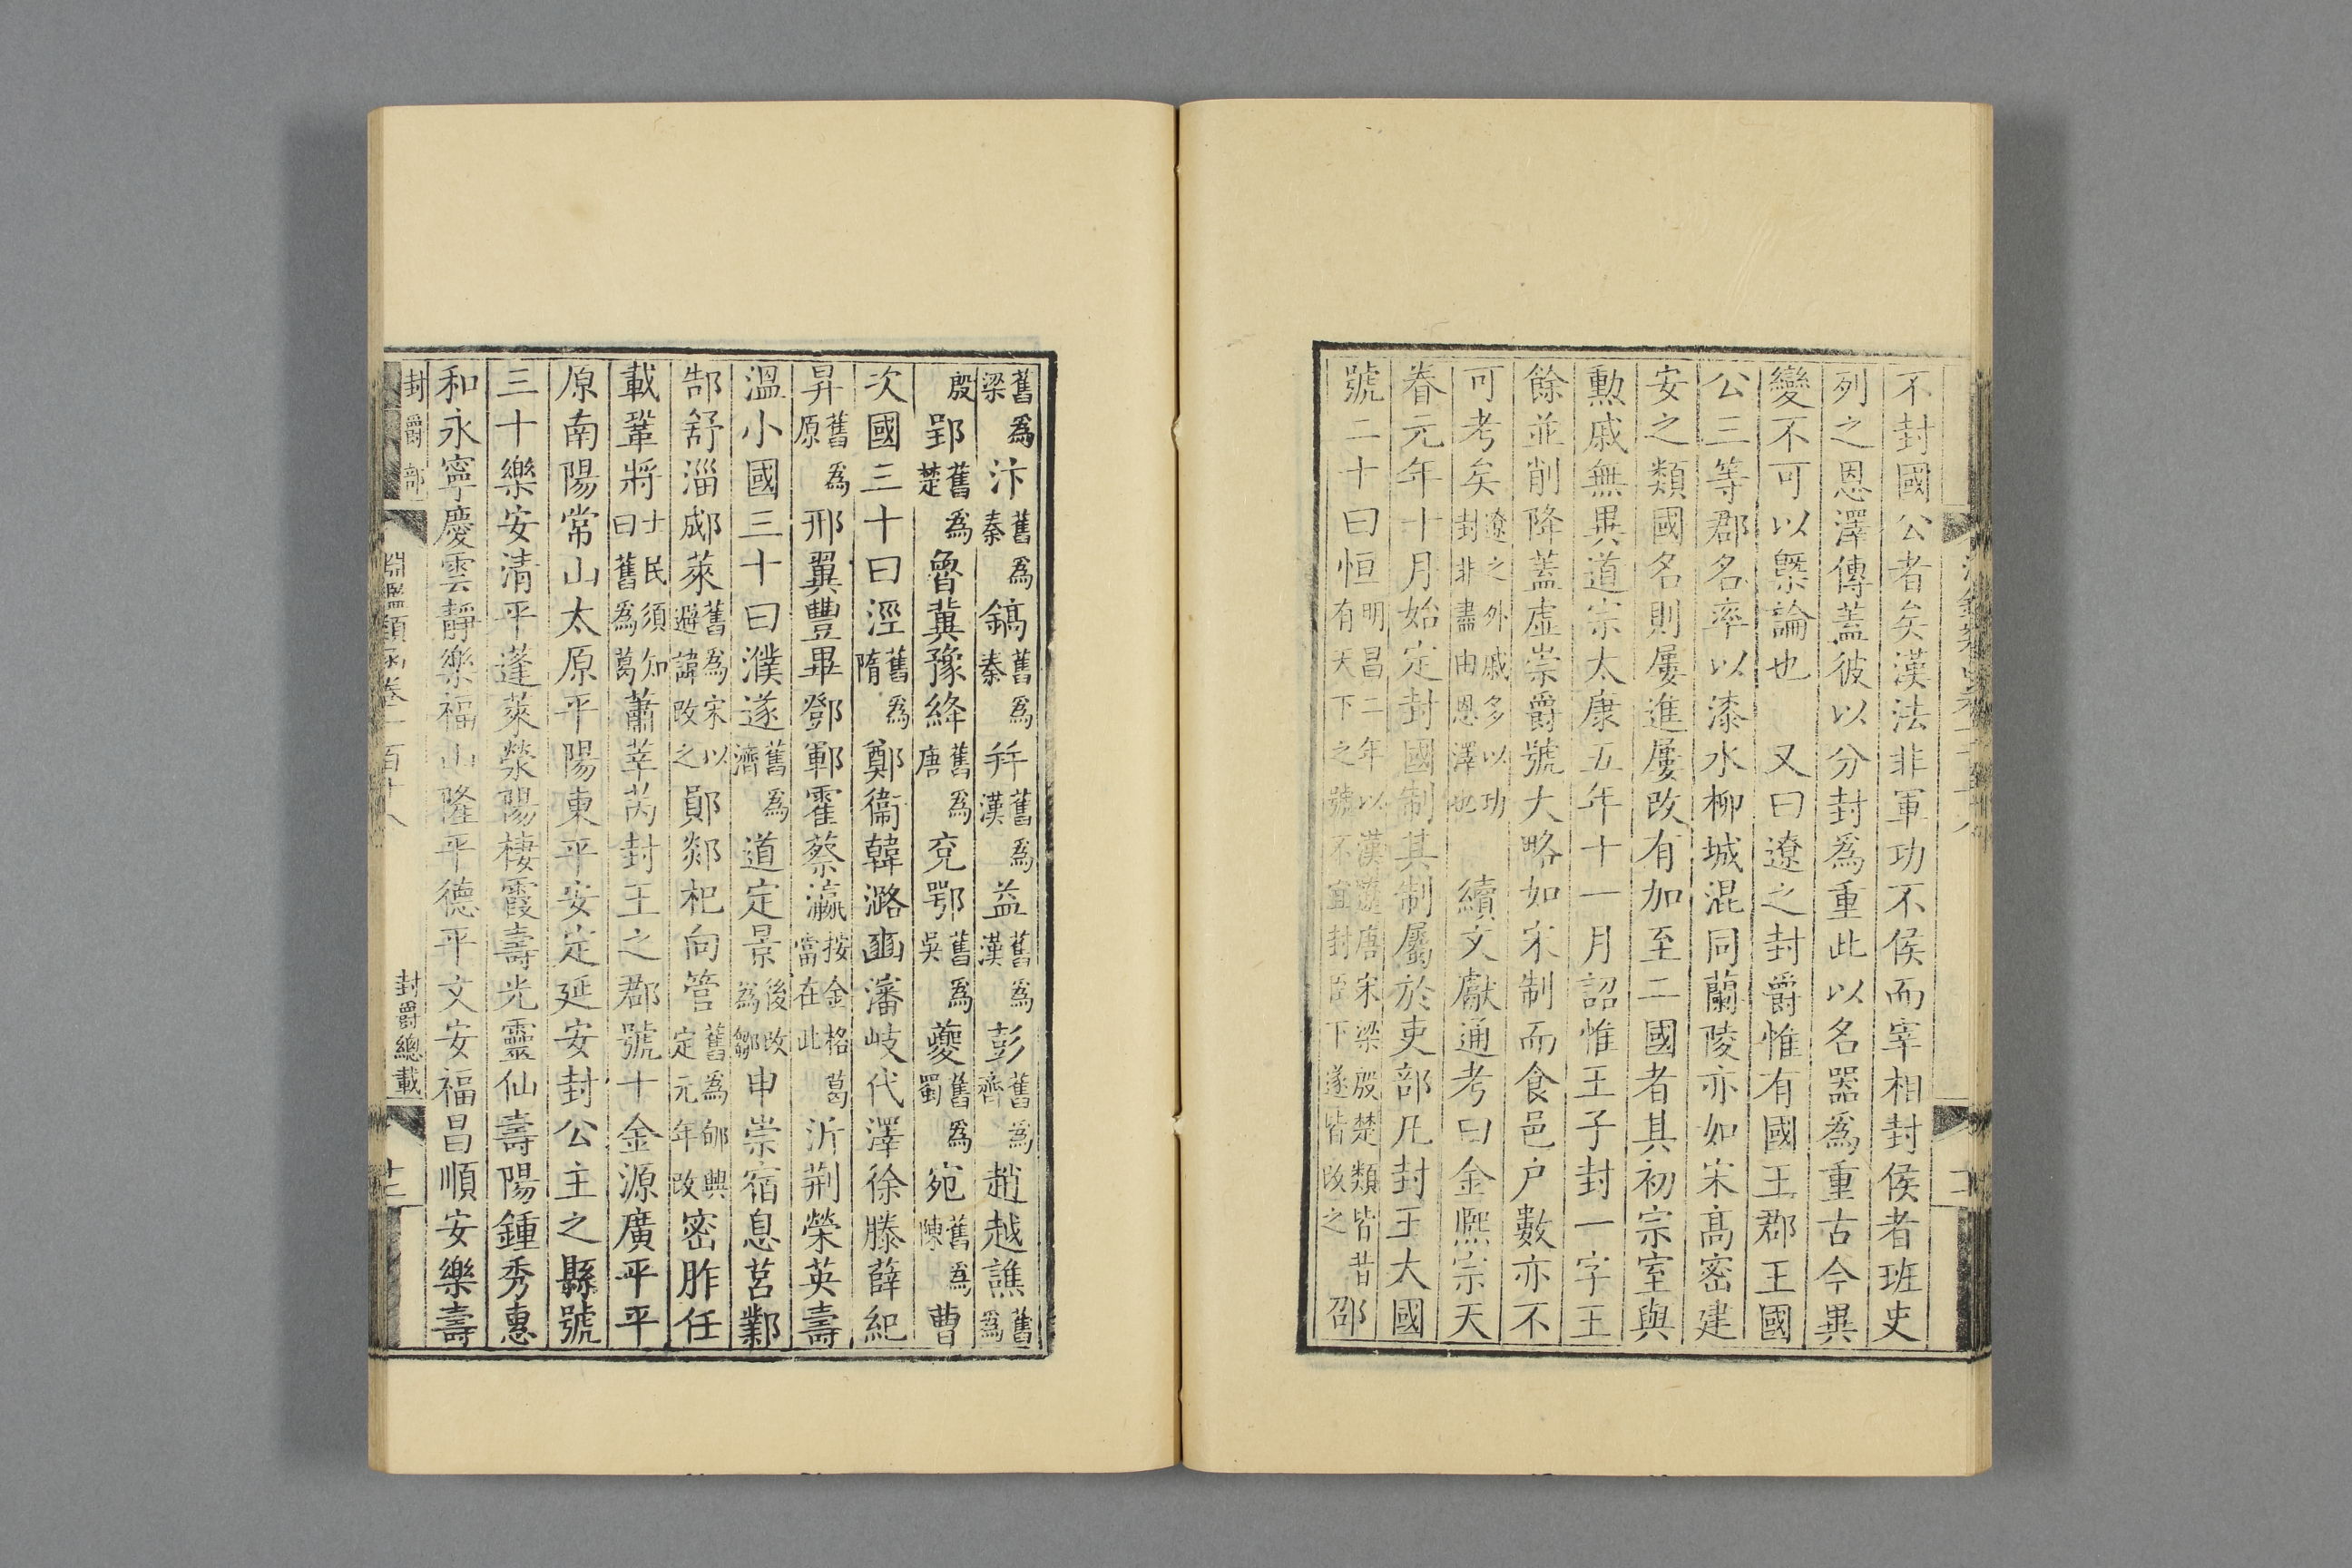 不封國公者矣漢法非軍功不侯而宰相封侯者班史
列之恩澤傳蓋彼以分封爲重此以名器爲重古今異
變不可以槩論也 又曰遼之封爵惟有國王郡王國
公三等郡名率以漆水柳城混同蘭陵亦如宋髙密建
安之類國名則屢進屢改有加至二國者其初宗室與
勲戚無異道宗太康五年十一月詔惟王子封一字王
餘並削降蓋虚崇爵號大略如宋制而食邑户數亦不
可考矣遼之外戚多以功封非盡由恩澤也 續文獻通考曰金熙宗天
眷元年十月始定封國制其制屬於吏部凡封王大國
號二十曰恒明昌二年以漢遼唐宋梁殷楚類皆昔有天下之號不宜封臣下遂皆改之邵
舊爲梁汴舊爲秦鎬舊爲秦并舊爲漢益舊爲漢彭舊爲齊趙越譙舊爲
殷郢舊爲楚魯冀豫絳舊爲唐兗鄂舊爲吳夔舊爲蜀宛舊爲陳曹
次國三十曰涇舊爲隋鄭衞韓潞豳瀋岐代澤徐滕薛紀
昇舊爲原邢翼豐畢鄧鄆霍蔡瀛按金格葛當在此沂荆榮英壽
溫小國三十曰濮遂舊爲濟道定景後改爲鄒申崇宿息莒鄴
郜舒淄郕萊舊爲宋以避諱改之鄖郯杞向管舊爲郇興定元年改密胙任
載鞏將士民須知曰舊爲葛蕭莘芮封王之郡號十金源廣平平
原南陽常山太原平陽東平安定延安封公主之縣號
三十樂安清平蓬萊滎陽棲霞壽光靈仙壽陽鍾秀惠
和永寧慶雲靜樂福山隆平德平文安福昌順安樂壽
封爵部
淵鑑類函卷一百廿八
封爵總載